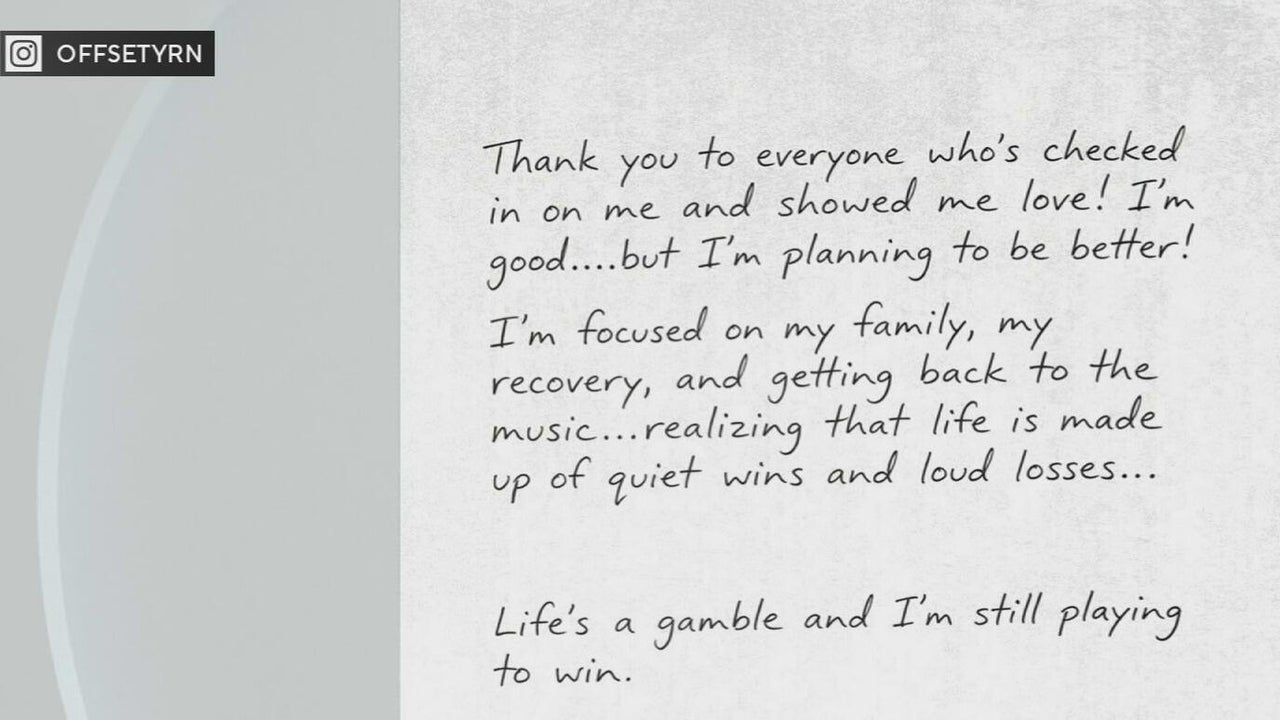 OFFSETYRN
Thank you to everyone who's checked
in on me and showed me love! I'm
good....but I'm planning to be better!
I'm focused on my family, my
recovery, and getting back to the
music...realizing that life is made
up of quiet wins and loud losses...
Life's a gamble and I'm still playing
to win.